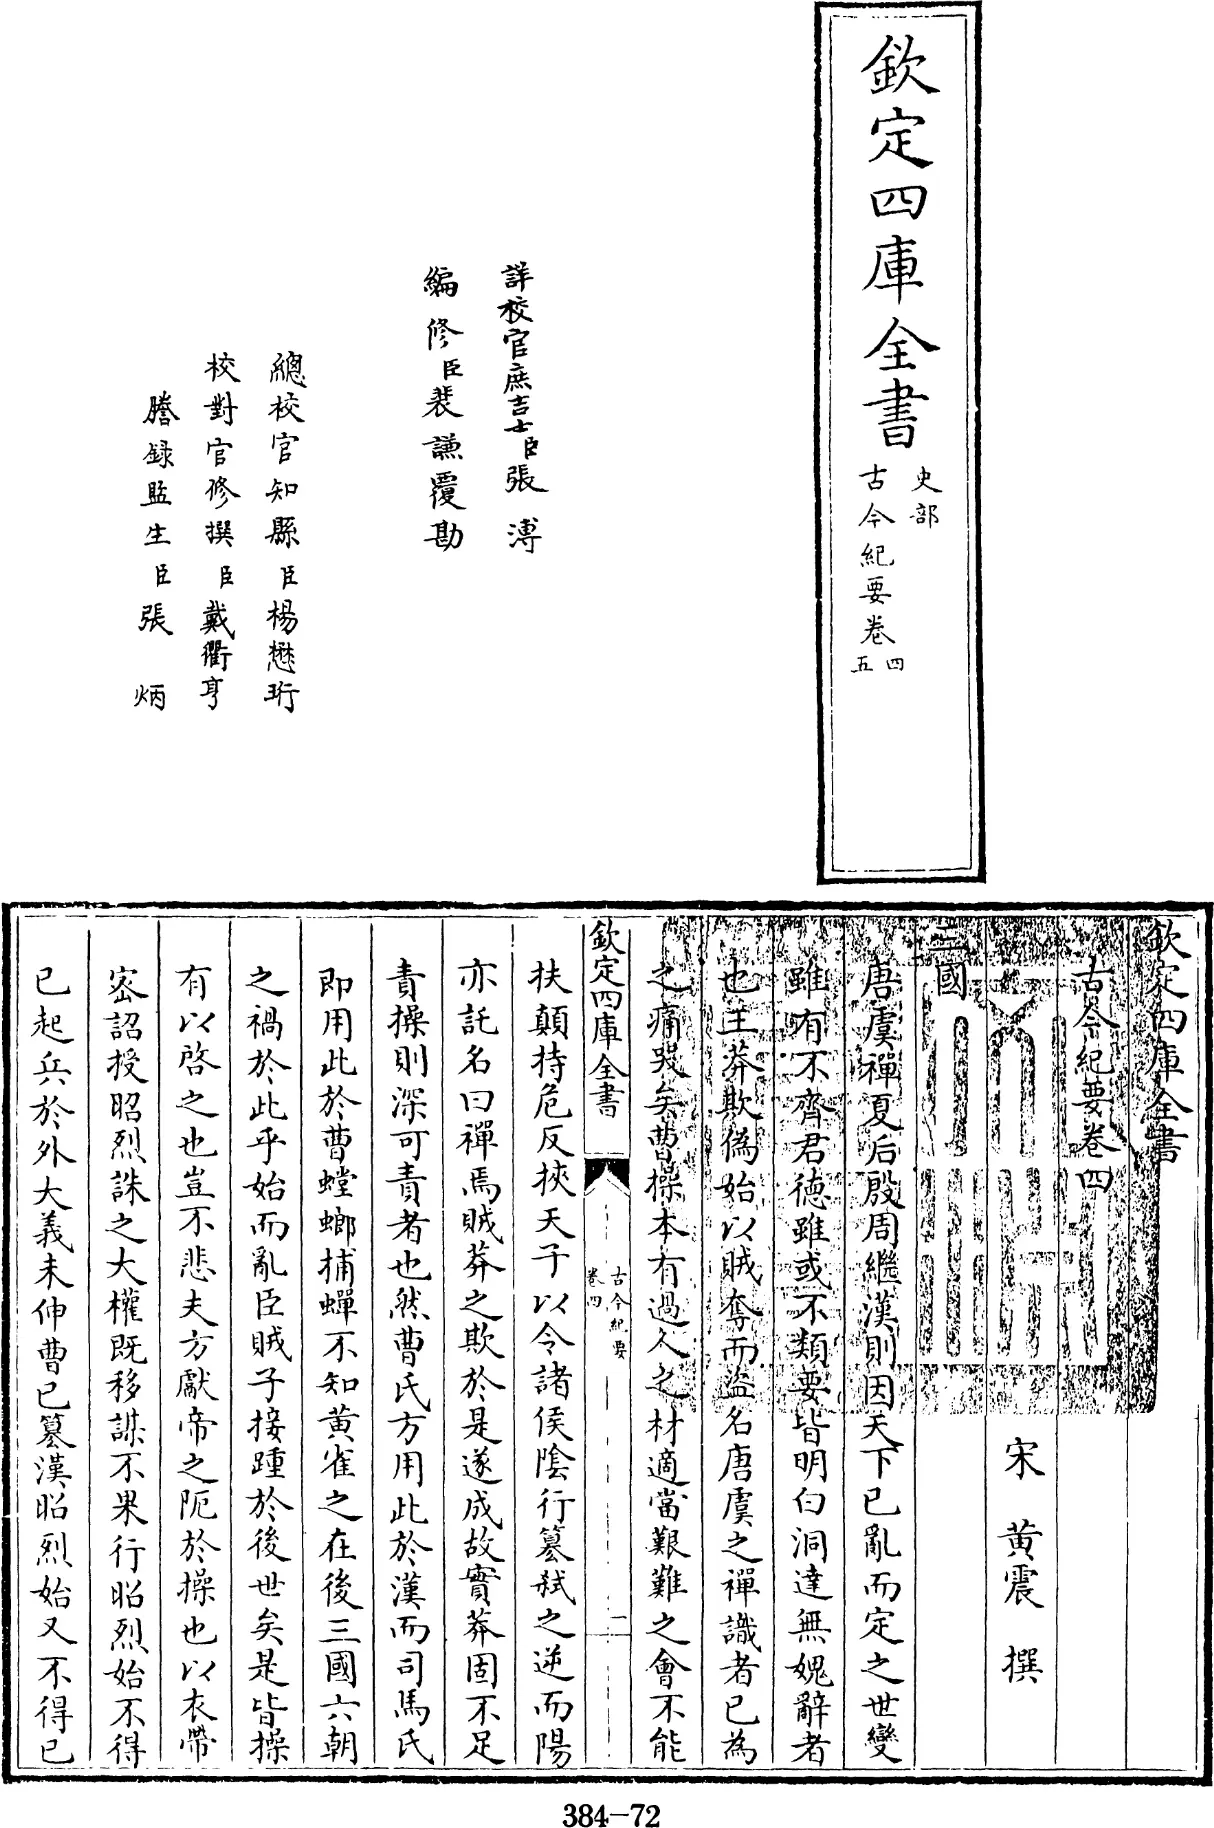 欽定四庫全書
史部
古今紀要卷四
五
詳校官庶吉士臣張溥
編修臣裴謙覆勘
總校官知縣臣楊懋珩
校對官修撰臣戴衢亨
謄錄監生臣張炳
欽定四庫全書
古今紀要卷四
宋黃震撰
三國
唐虞禪夏后殷周繼漢則因天下已亂而定之世變
雖有不齊君德雖或不類要皆明白洞達無媿辭者
也王莽欺僞始以賊奪而盜名唐虞之禪識者已為
之痛哭矣曹操本有過人之材適當艱難之會不能
欽定四庫全書
古今紀要
卷四
一
扶顛持危反挾天子以令諸侯陰行篡弒之逆而陽
亦託名曰禪焉賊莽之欺於是遂成故實莽固不足
責操則深可責者也然曹氏方用此於漢而司馬氏
即用此於曹螳螂捕蟬不知黃雀之在後三國六朝
之禍於此乎始而亂臣賊子接踵於後世矣是皆操
有以啓之也豈不悲夫方獻帝之阨於操也以衣帶
密詔授昭烈誅之大權既移謀不果行昭烈始不得
已起兵於外大義未伸曹已篡漢昭烈始又不得已
384-72